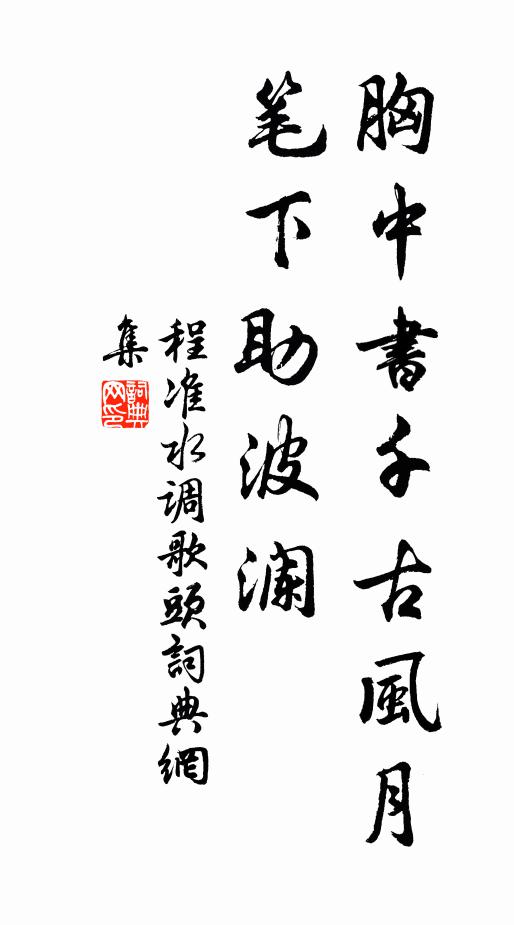 胸中書千古風月
笔下助波澜
程准水调歌頭詞典網
集
詞典网印